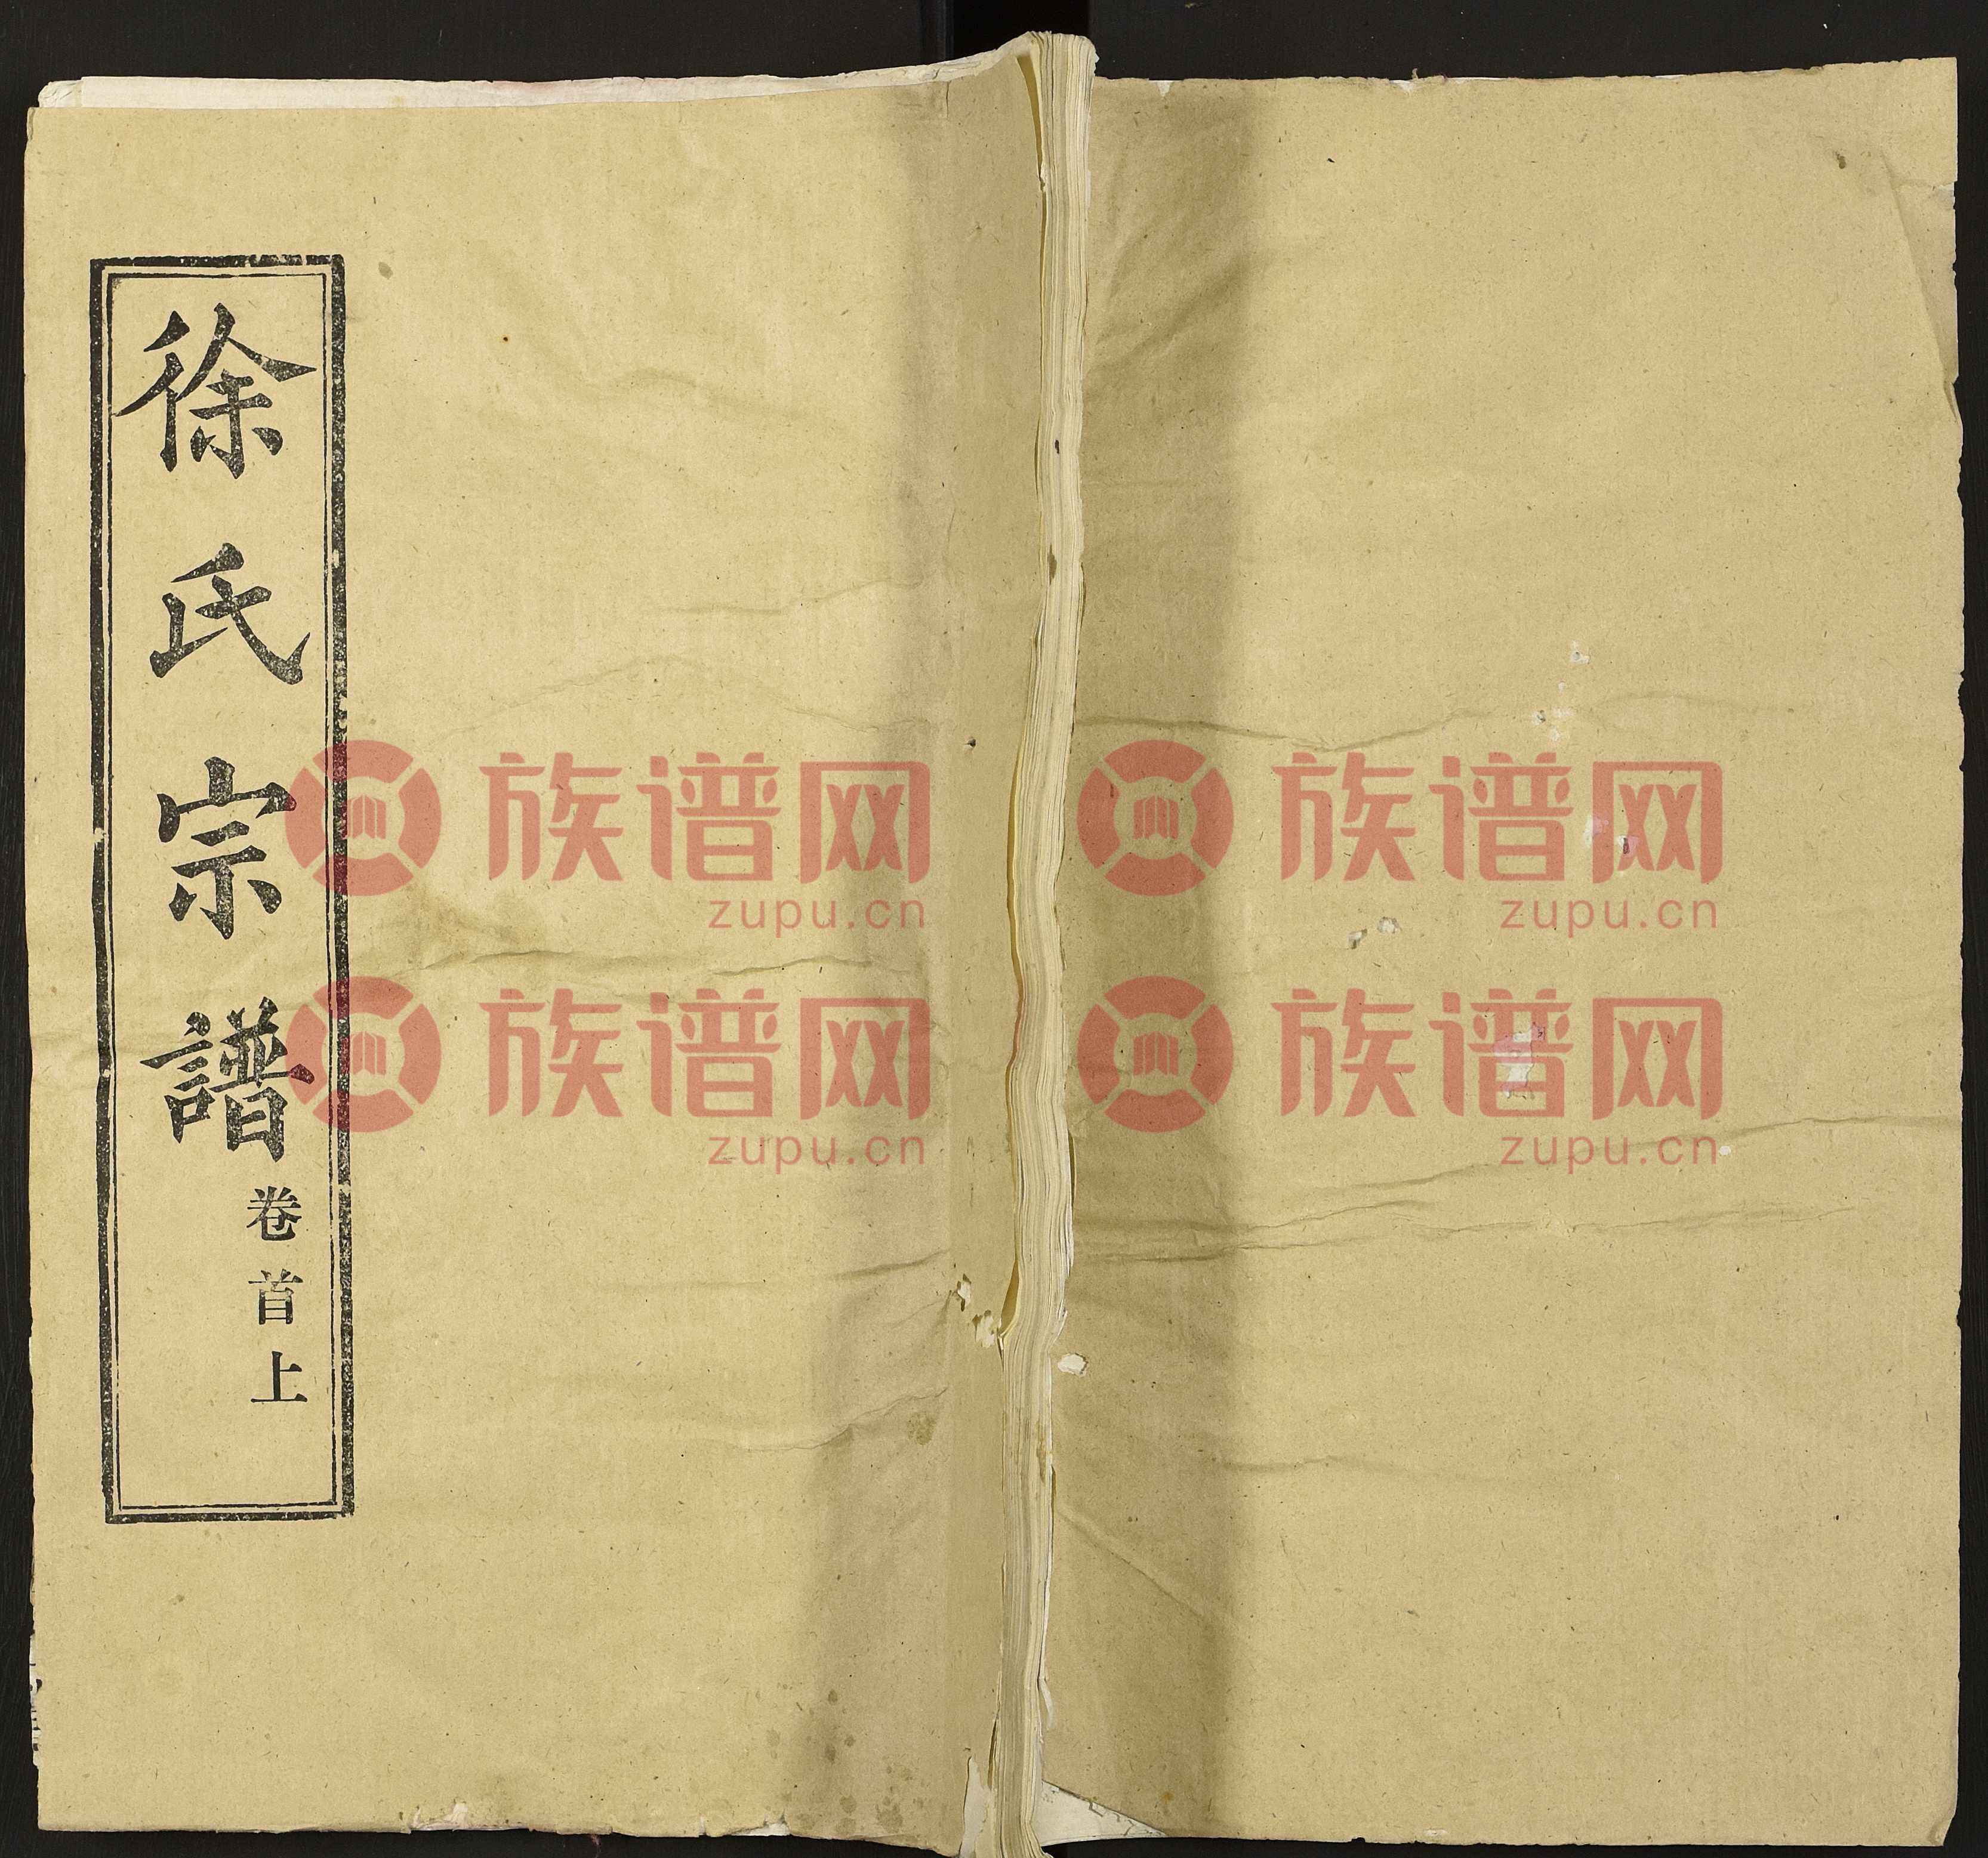 徐氏宗譜
卷首上
族谱网
zupu.cn
族谱网
zupu.cn
族谱网
zupu.cn
族谱网
zupu.cn